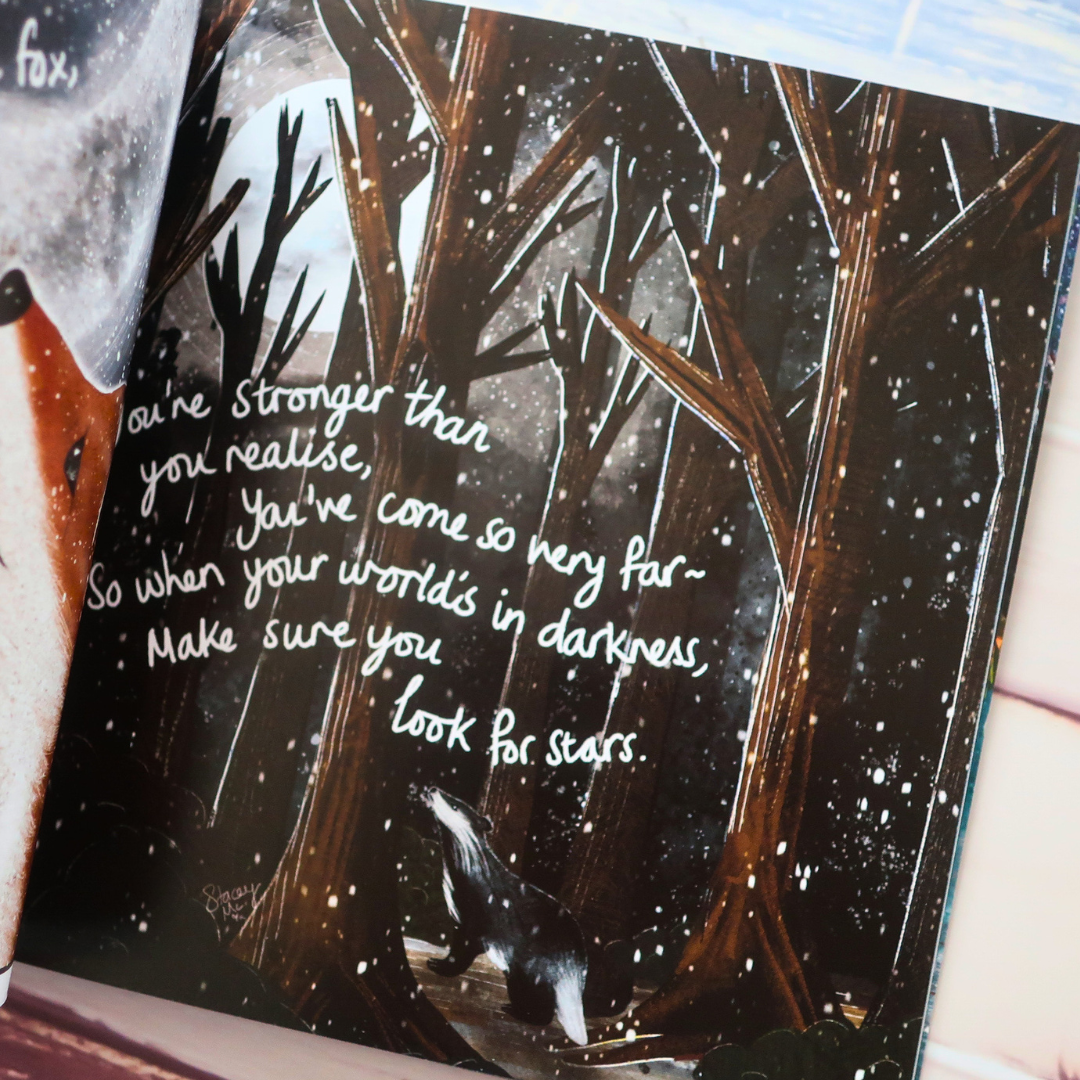 fox,
ou're stronger than
you realise,
You've come so very far~
So when your world's in darkness,
Make sure you
look for stars.
Stacey